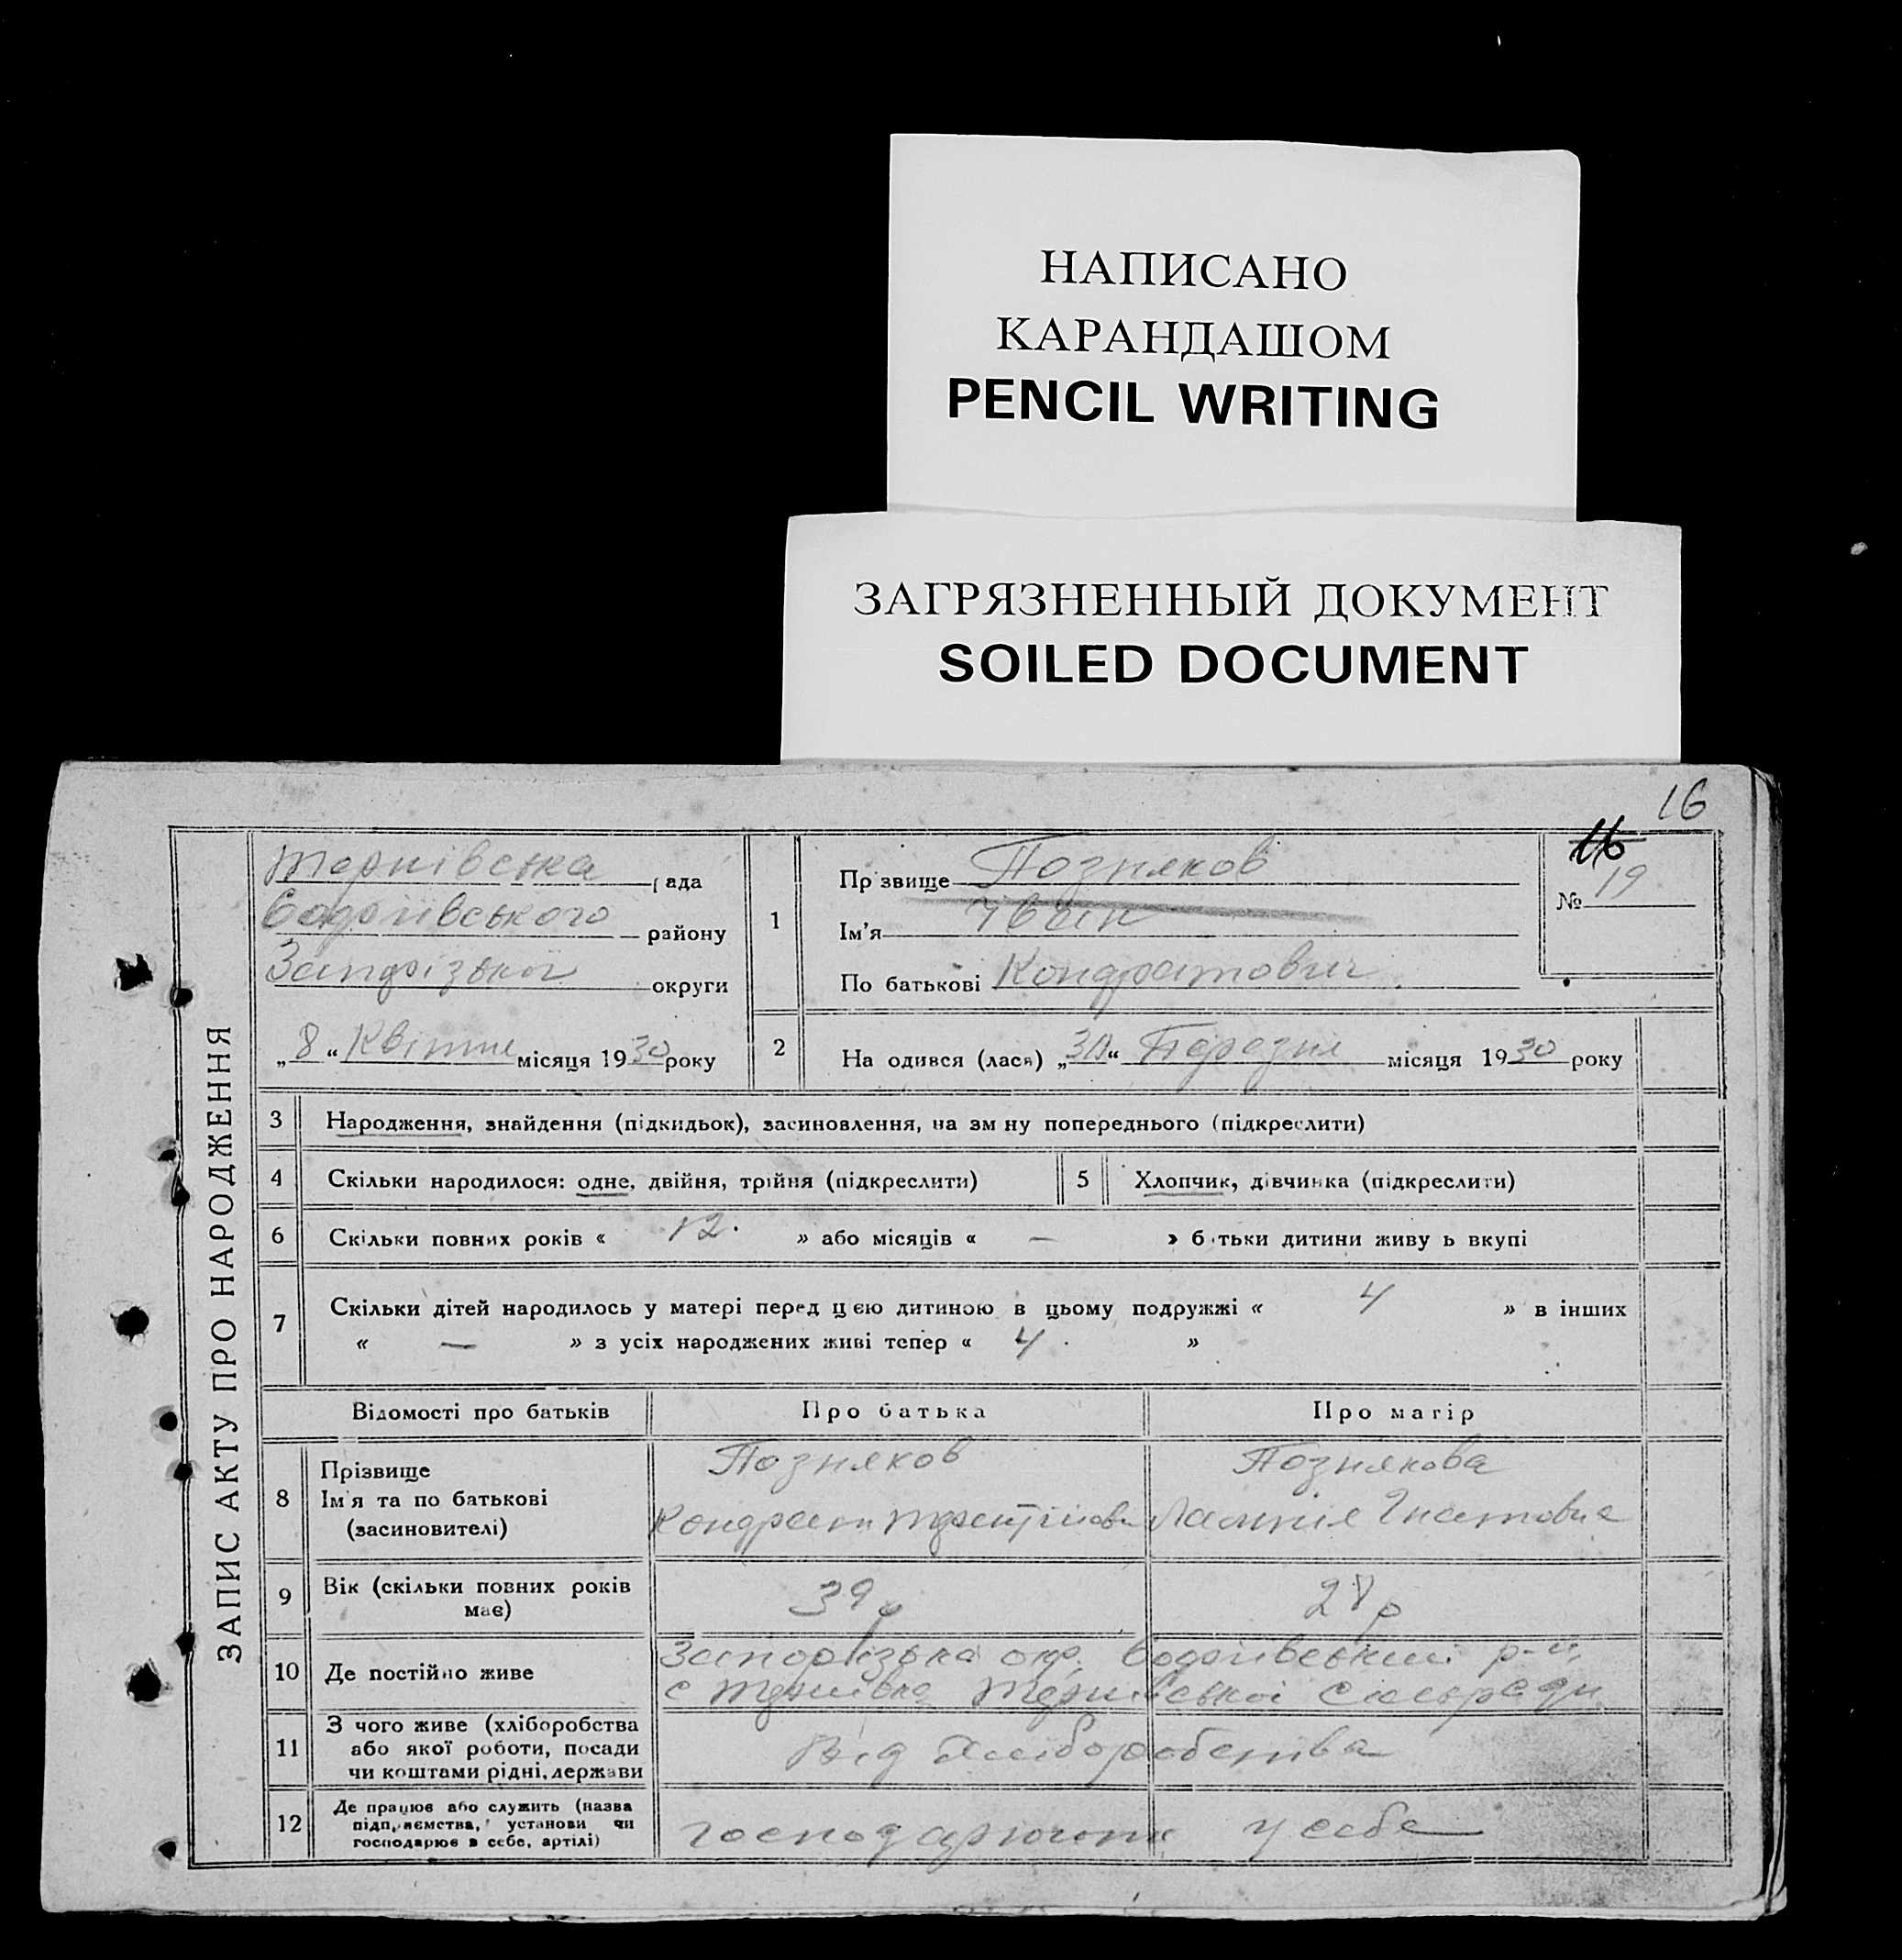 НАПИСАНО
КАРАНДАШОМ
PENCIL WRITING
ЗАГРЯЗНЕННЫЙ ДОКУМЕНТ
SOILED DOCUMENT
16
16
ЗАПИС АКТУ ПРО НАРОДЖЕННЯ
Тернівська рада
району
округи
„8“ Квітня місяця 1930 року
1
Прізвище Позняков
Ім'я Іван
По батькові Кондратович
№ 19
2
На одився (лася) „30“ Березня місяця 1930 року
3 Народження, знайдення (підкидьок), засиновлення, на зм ну попереднього (підкреслити)
4 Скільки народилося: одне, двійня, трійня (підкреслити)
5 Хлопчик, дівчинка (підкреслити)
6 Скільки повних років « 12. » або місяців « — » б тьки дитини живу ь вкупі
7 Скільки дітей народилось у матері перед цією дитиною в цьому подружжі « 4 » в інших
« — » з усіх народжених живі тепер « 4 . »
Відомості про батьків Про батька Про матір
8 Прізвище
Ім'я та по батькові
(засиновителі)
Позняков
Кондрат
Познякова
Гнатовна
9 Вік (скільки повних років
має)
39 р
28 р
10 Де постійно живе
Запорізька окр. р-н,
с Тернівка Тернівської сільради
11 З чого живе (хліборобства
або якої роботи, посади
чи коштами рідні, держави
Від Хліборобства
12 Де працює або служить (назва
підприємства, установи чи
господарює в себе, артілі)
господарюють у себе